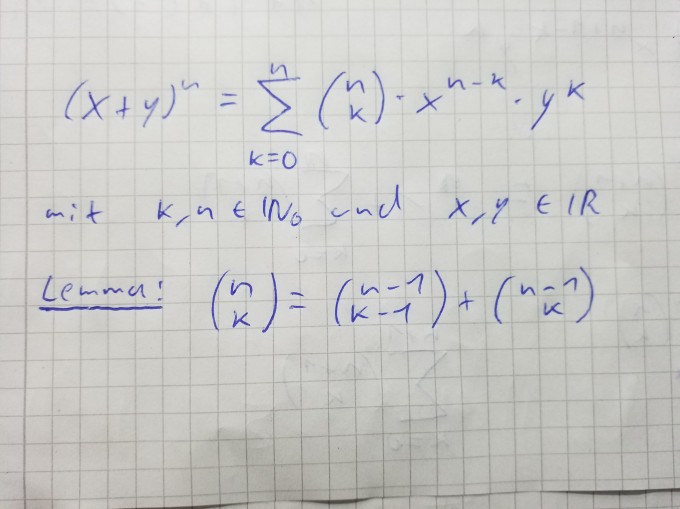 (x+y)ⁿ = ∑ₖ₌₀ⁿ (n k) · xⁿ⁻ᵏ · yᵏ
mit k, n ∈ ℕ₀ und x, y ∈ ℝ
Lemma: (n k) = (n-1 k-1) + (n-1 k)